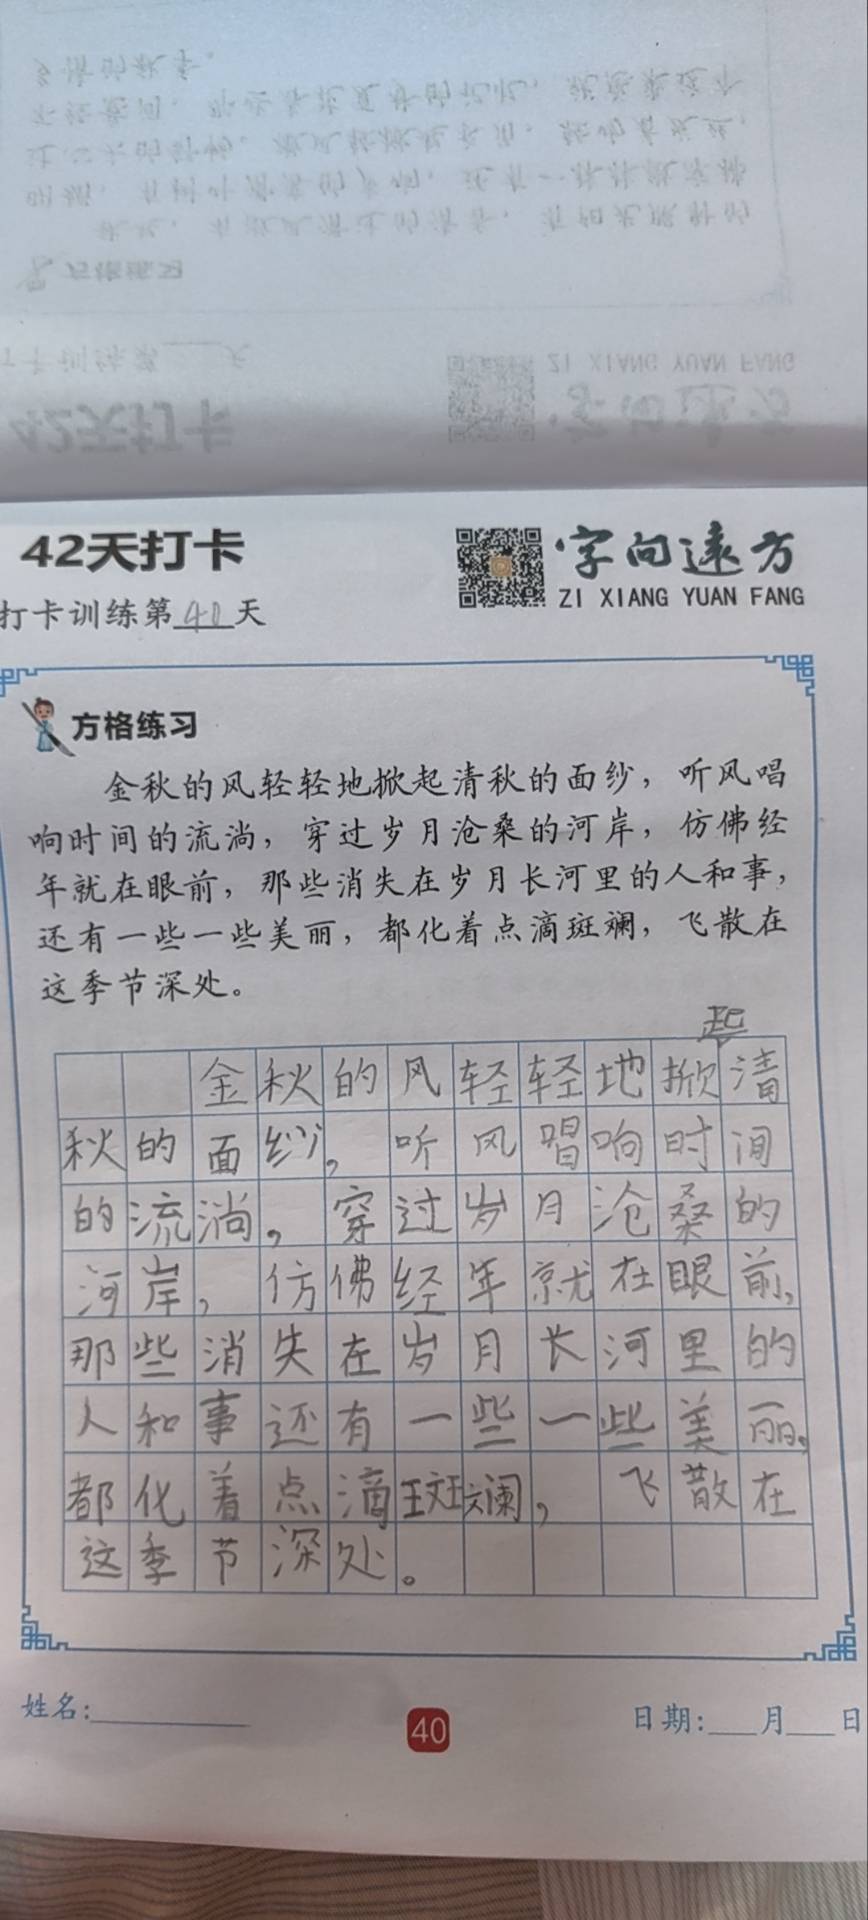 42天打卡
字向远方
ZI XIANG YUAN FANG
打卡训练第40天
方格练习
金秋的风轻轻地掀起清秋的面纱，听风唱
响时间的流淌，穿过岁月沧桑的河岸，仿佛经
年就在眼前，那些消失在岁月长河里的人和事，
还有一些一些美丽，都化着点滴斑斓，飞散在
这季节深处。
起
金秋的风轻轻地掀清
秋的面纱，听风唱响时间
的流淌，穿过岁月沧桑的
河岸，仿佛经年就在眼前，
那些消失在岁月长河里的
人和事还有一些一些美丽，
都化着点滴斑斓，飞散在
这季节深处。
姓名：
40
日期：＿＿月＿＿日